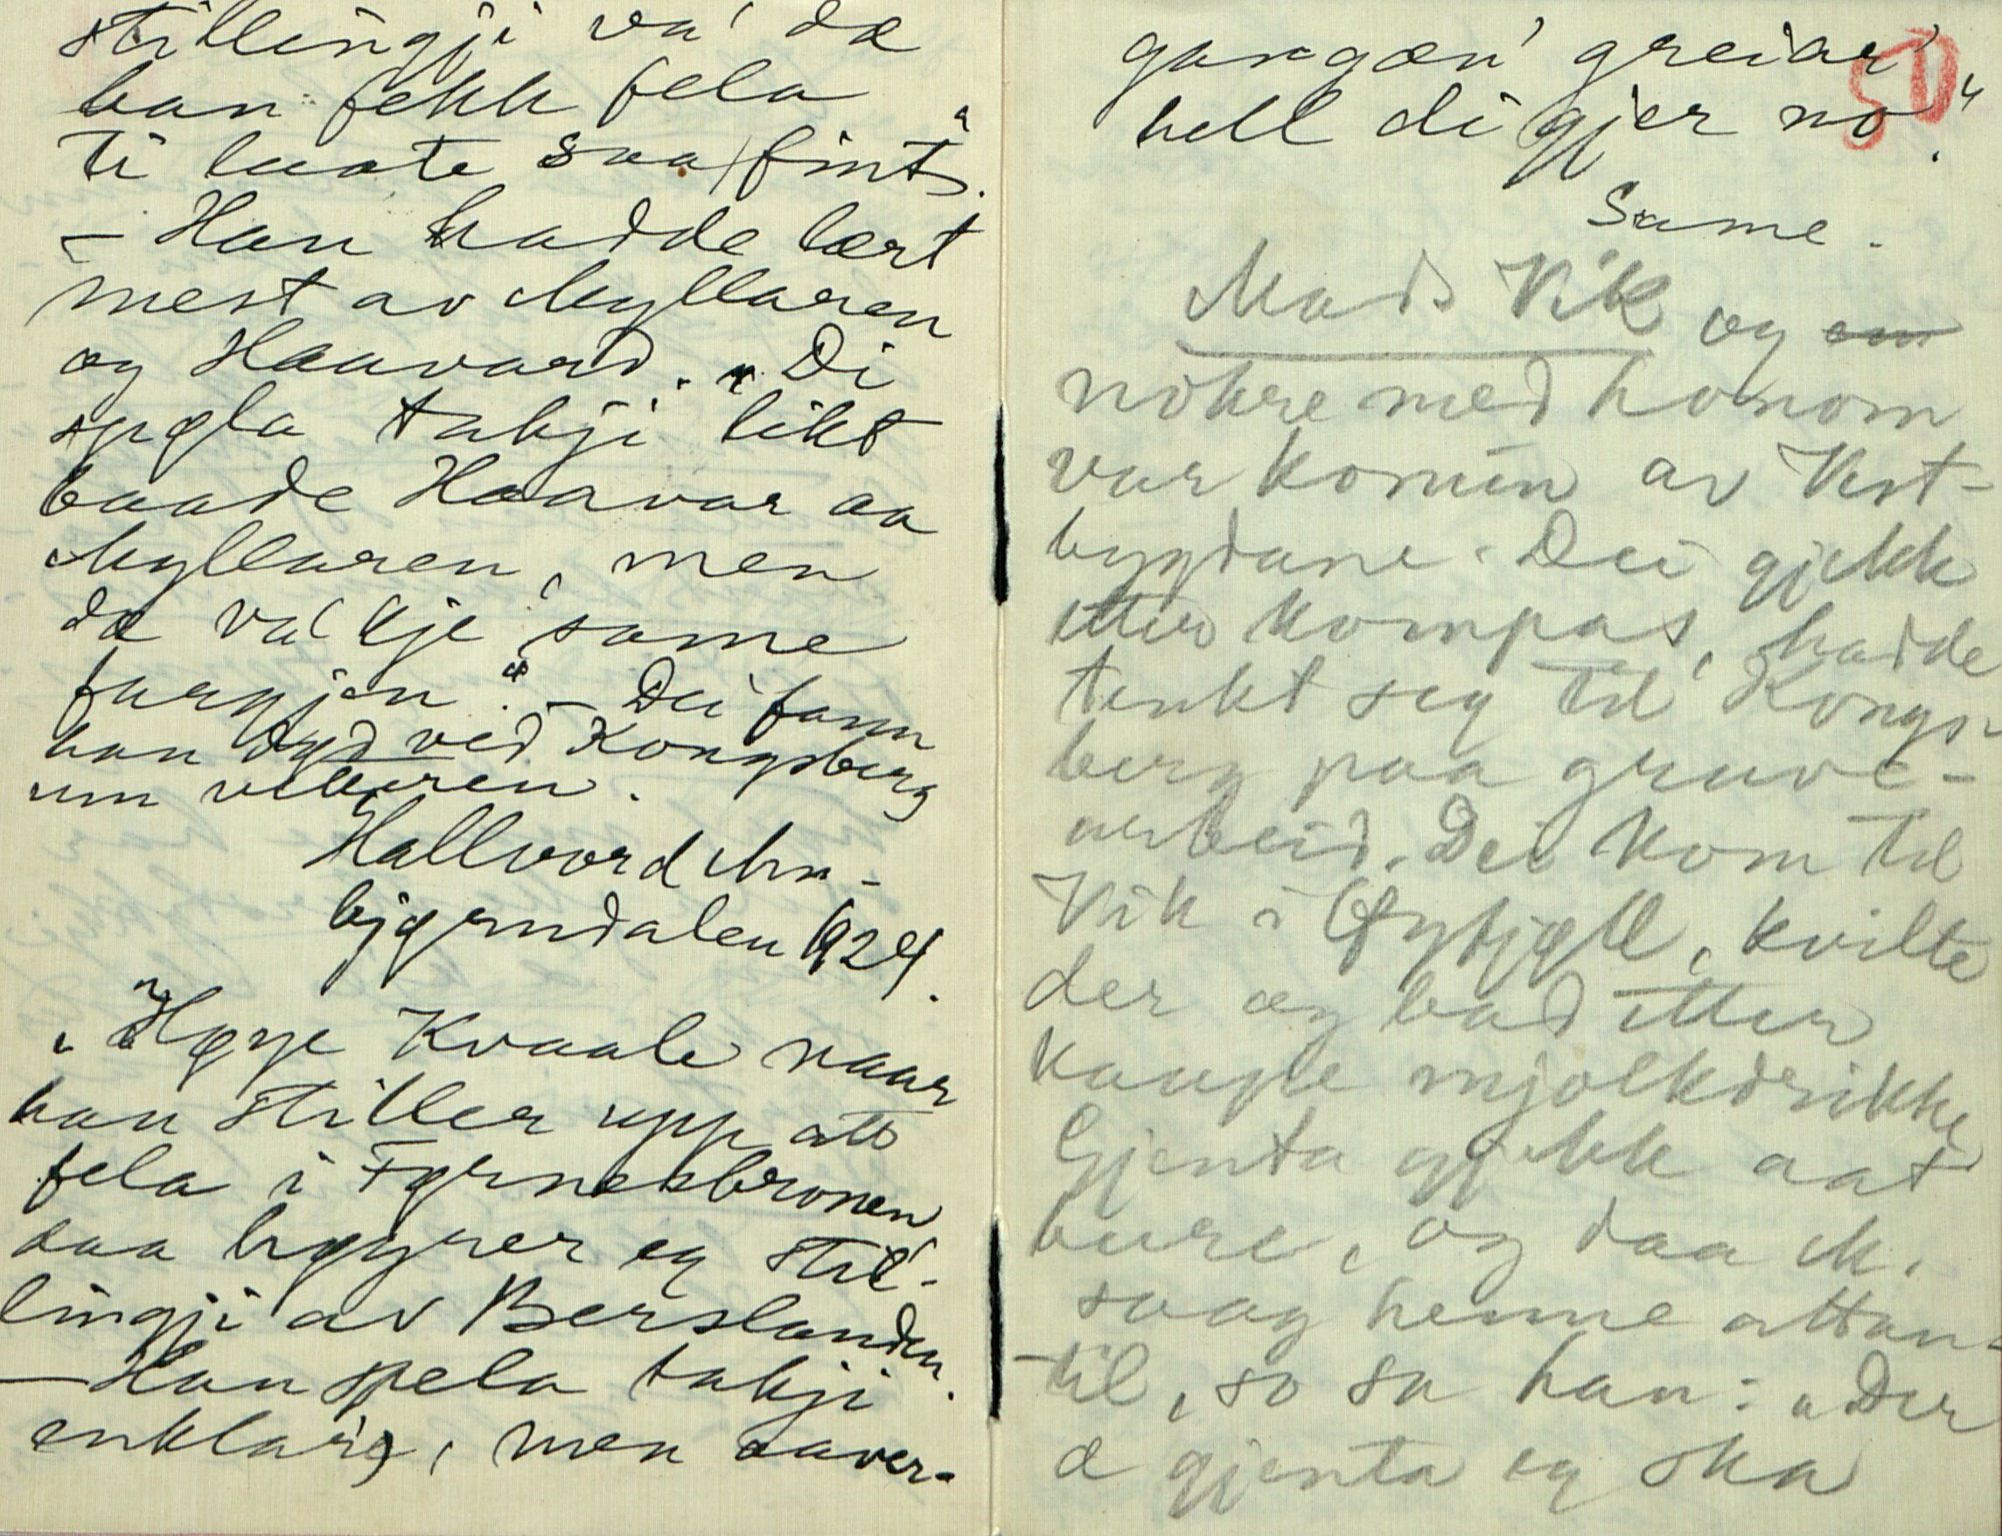 stillingji va' dæ
han fekk fela
ti laate saa fint".
– Han hadde lært
mest av Myllaren
og Haavard. "Di
spela takji likt
baade Haavar aa
Myllaren, men
dæ va' kje same
fargjen." – Dei fann
han dyd ved Kongsberg
um vetteren.
Hallvord Aen-
bjørndalen 1924.
"Høye Kvaale naar
han stiller upp att
fela i Fyrnesbronen
daa høyrer eg stil-
lingji av Berslanden.
– Han spela takji
enklare, men aaver-
gangæn' greiar'
hell di gjer no".
50
Same.
Mads Vik og em
nokre med honom
var komin av Vest-
bygdane. Dei gjekk
etter kompas, hadde
tenkt seg til Kongs-
berg paa gruve-
arbeid. Dei kom til
Vik i Øyfjøll, kvilte
der og bad etter
kaupe mjolkdrikke
Gjenta gjekk aat
bure, og daa M.
saag henne attan-
til, so sa han: "Der
æ gjenta eg ska